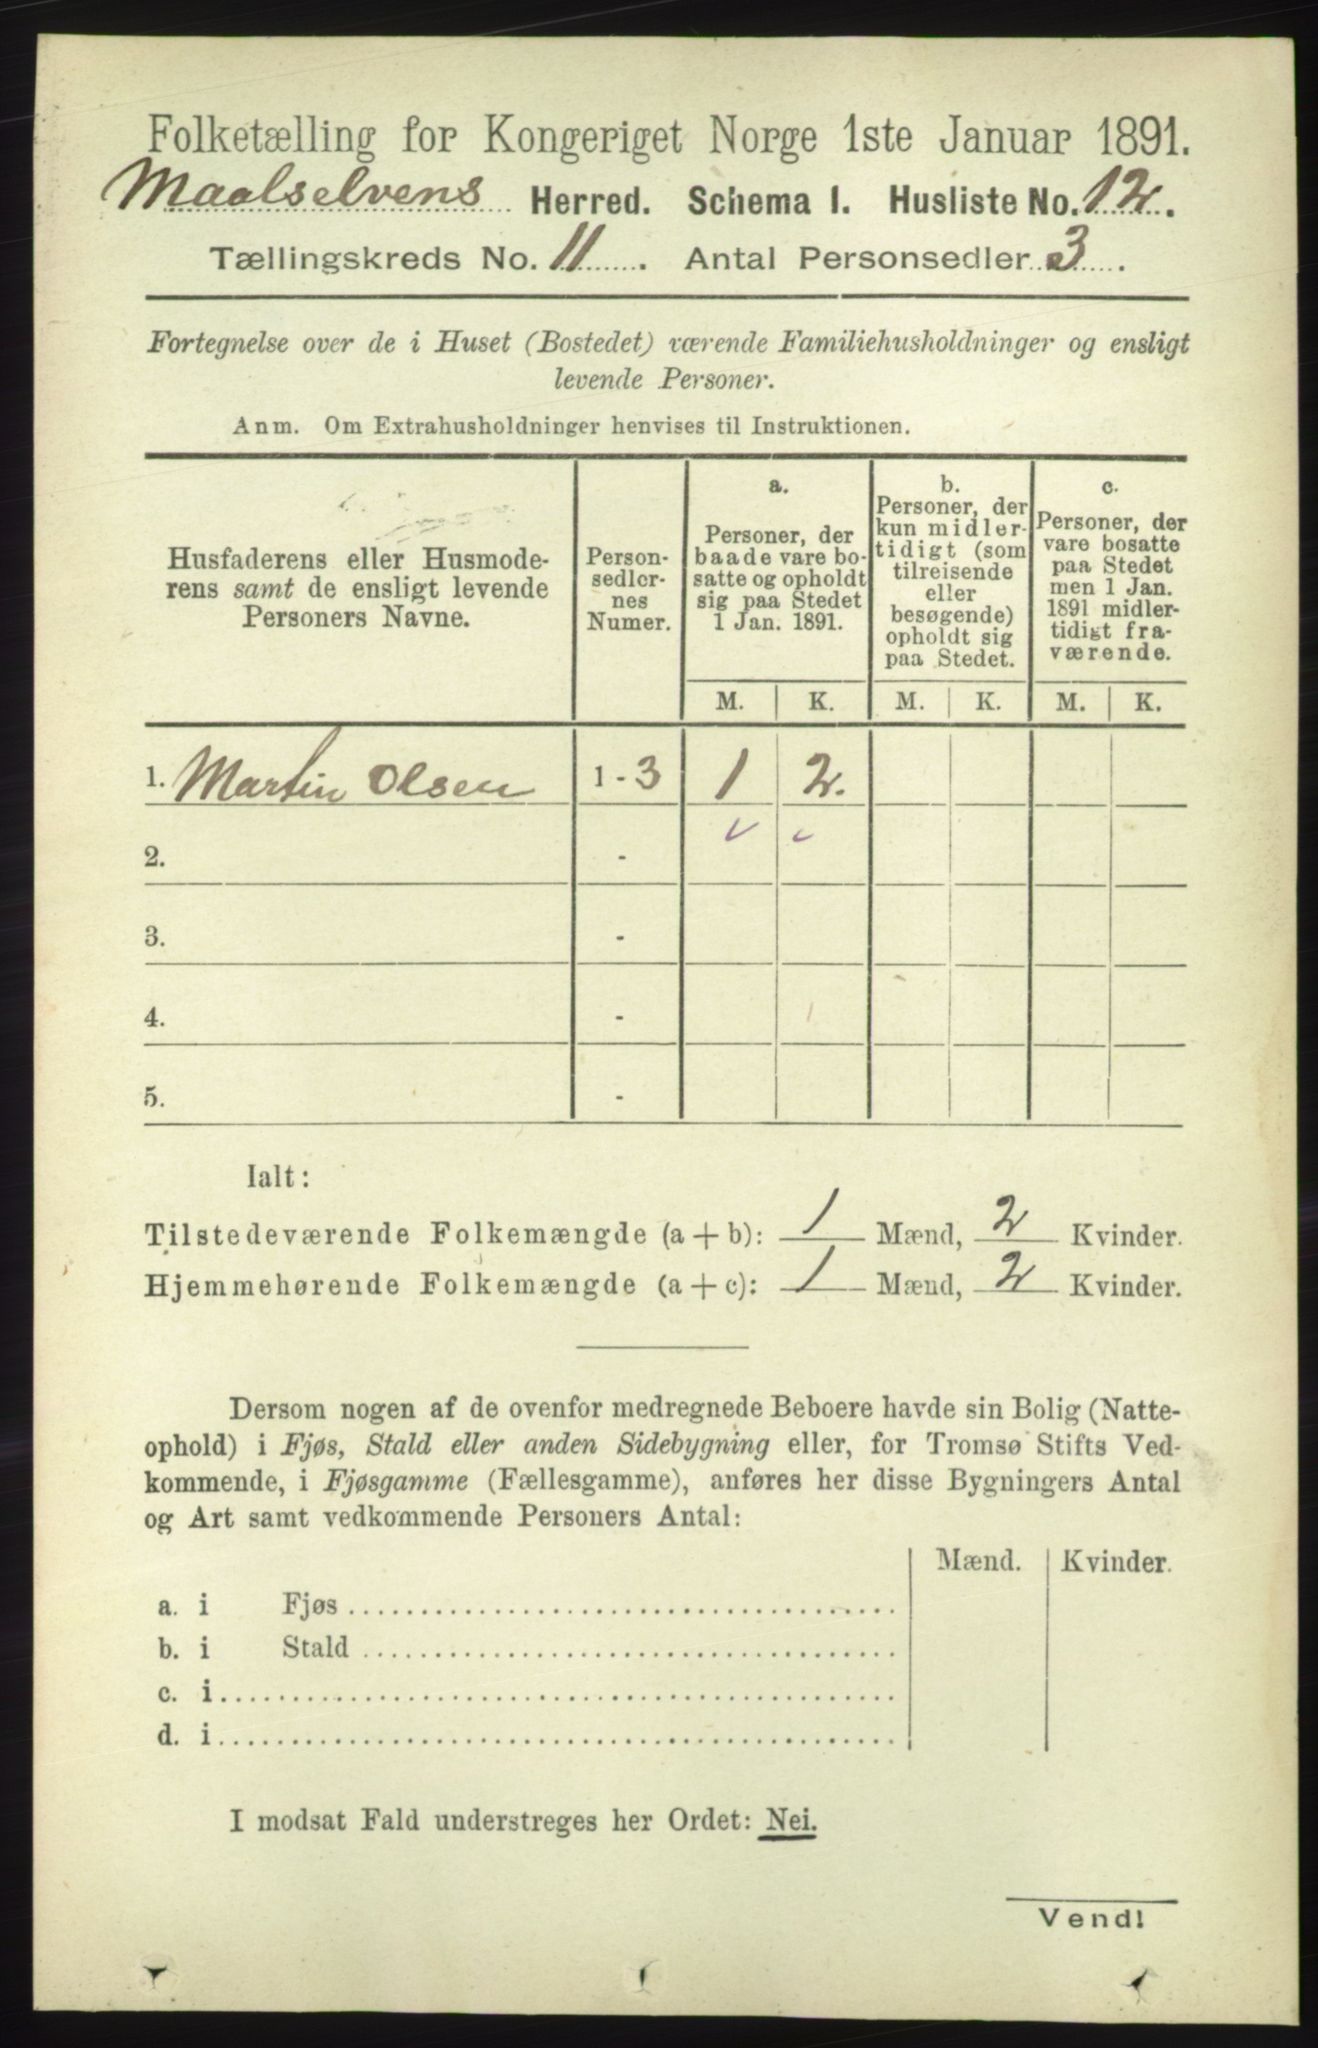 Folketælling for Kongeriget Norge 1ste Januar 1891.
Maalselvens Herred. Schema I. Husliste No. 12.
Tællingskreds No. 11. Antal Personsedler 3.
Fortegnelse over de i Huset (Bostedet) værende Familiehusholdninger og ensligt
levende Personer.
Anm. Om Extrahusholdninger henvises til Instruktionen.
Husfaderens eller Husmode-
rens samt de ensligt levende
Personers Navne.
Person-
sedler-
nes
Numer.
a.
Personer, der
baade vare bo-
satte og opholdt
sig paa Stedet
1 Jan. 1891.
b.
Personer, der
kun midler-
tidigt (som
tilreisende
eller
besøgende)
opholdt sig
paa Stedet.
c.
Personer, der
vare bosatte
paa Stedet
men 1 Jan.
1891 midler-
tidigt fra-
værende.
M. K. M. K. M. K.
1. Martin Olsen 1 - 3 1 2.
2. -
3. -
4. -
5. -
Ialt:
Tilstedeværende Folkemængde (a + b): 1 Mænd, 2 Kvinder.
Hjemmehørende Folkemængde (a + c): 1 Mænd, 2 Kvinder.
Dersom nogen af de ovenfor medregnede Beboere havde sin Bolig (Natte-
ophold) i Fjøs, Stald eller anden Sidebygning eller, for Tromsø Stifts Ved-
kommende, i Fjøsgamme (Fællesgamme), anføres her disse Bygningers Antal
og Art samt vedkommende Personers Antal:
Mænd. Kvinder.
a. i Fjøs
b. i Stald
c. i
d. i
I modsat Fald understreges her Ordet: Nei.
Vend!